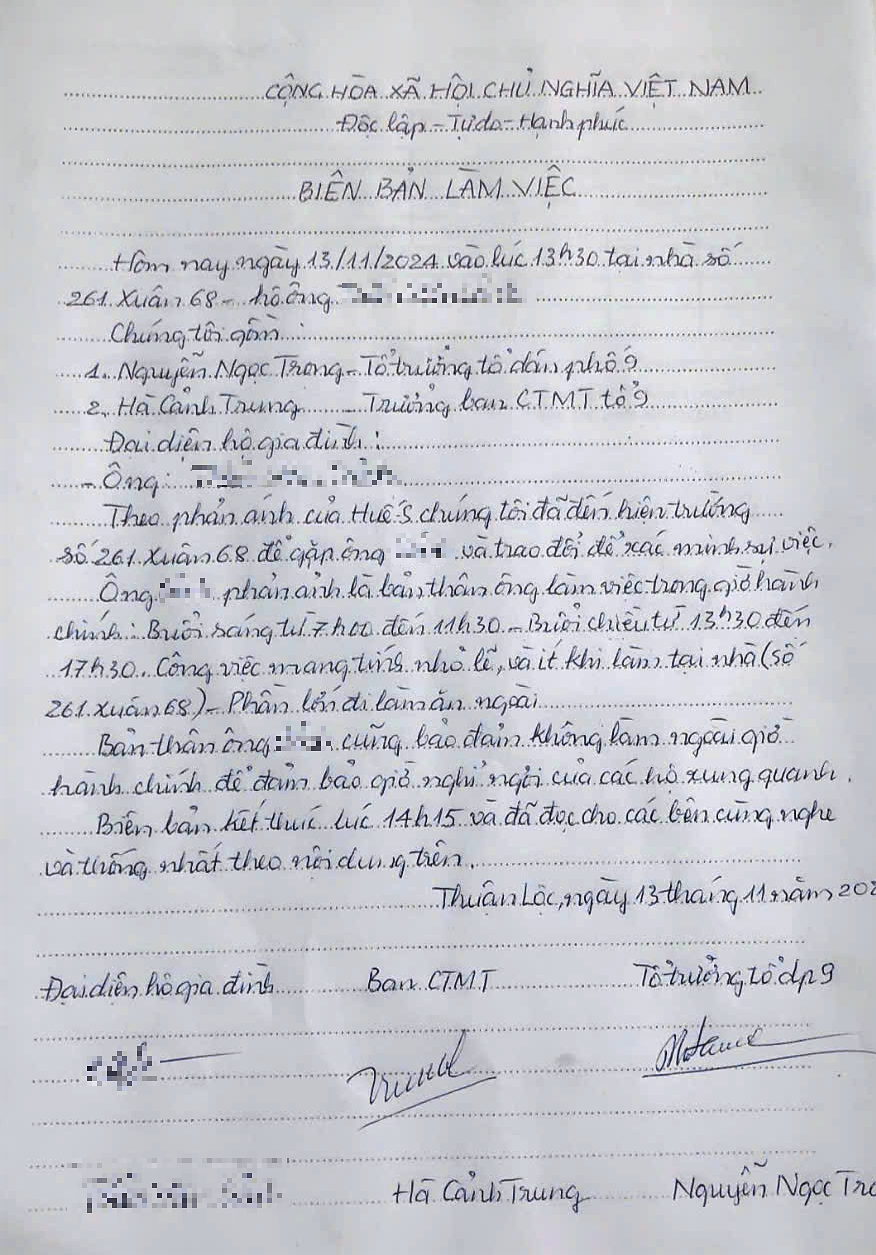 CỘNG HÒA XÃ HỘI CHỦ NGHĨA VIỆT NAM
Độc lập - Tự do - Hạnh phúc
BIÊN BẢN LÀM VIỆC
Hôm nay ngày 13/11/2024 vào lúc 13h30 tại nhà số
261 Xuân 68 - hộ ông
Chúng tôi gồm :
1. Nguyễn Ngọc Trọng - Tổ trưởng tổ dân phố 9
2. Hà Cảnh Trung - Trưởng ban CTMT tổ 9
Đại diện hộ gia đình :
- Ông :
Theo phản ánh của Huế S chúng tôi đã đến hiện trường
số 261 Xuân 68 để gặp ông và trao đổi để xác minh sự việc.
Ông phản ảnh là bản thân ông làm việc trong giờ hành
chính : Buổi sáng từ 7h00 đến 11h30 - Buổi chiều từ 13h30 đến
17h30. Công việc mang tính nhỏ lẽ, và ít khi làm tại nhà (số
261 Xuân 68) - Phần lớn đi làm ăn ngoài
Bản thân ông cũng bảo đảm không làm ngoài giờ
hành chính để đảm bảo giờ nghỉ ngơi của các hộ xung quanh.
Biên bản kết thúc lúc 14h15 và đã đọc cho các bên cùng nghe
và thống nhất theo nội dung trên.
Thuận Lộc, ngày 13 tháng 11 năm 202
Đại diện hộ gia đình Ban CTMT Tổ trưởng tổ dp 9
Hà Cảnh Trung Nguyễn Ngọc Trọ